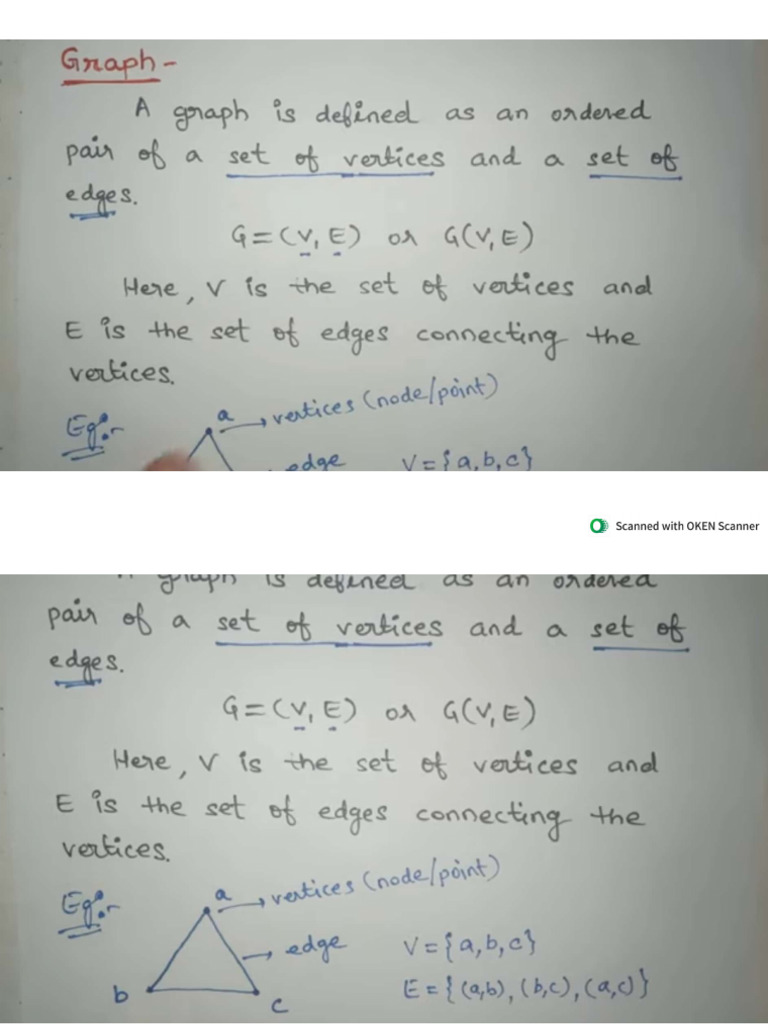 Graph-
A graph is defined as an ordered
pair of a set of vertices and a set of
edges.
G=(V, E) or G(V, E)
Here, V is the set of vertices and
E is the set of edges connecting the
vertices.
Eg:- a → vertices (node/point)
edge V={a,b,c}
Scanned with OKEN Scanner
A graph is defined as an ordered
pair of a set of vertices and a set of
edges.
G=(V, E) or G(V, E)
Here, V is the set of vertices and
E is the set of edges connecting the
vertices.
Eg:- a → vertices (node/point)
→ edge V={a,b,c}
b c E={(a,b), (b,c), (a,c)}